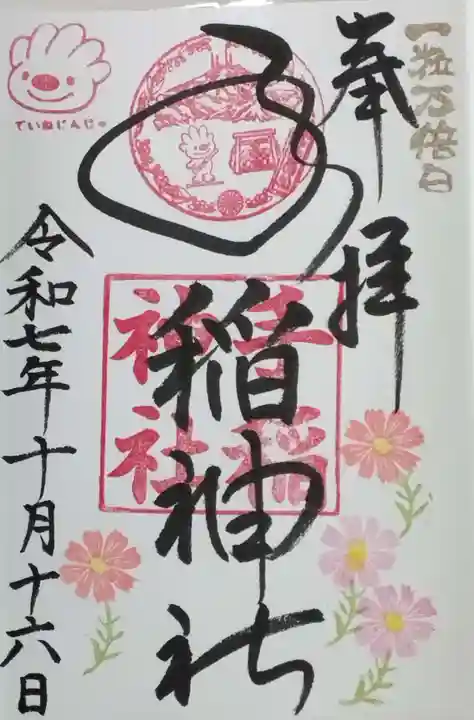 一粒万倍日
奉拝
手稲神社
手稲神社
令和七年十月十六日
ていねじんじゃ